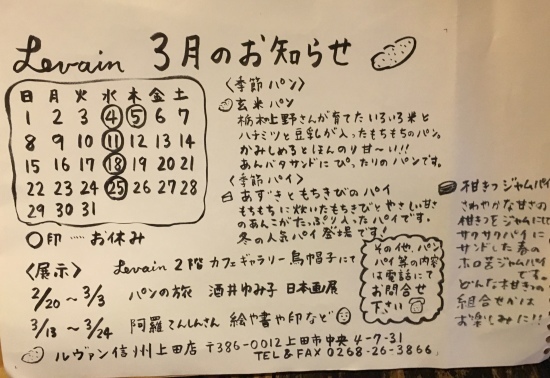 Levain 3月のお知らせ
日 月 火 水 木 金 土
1 2 3 4 5 6 7
8 9 10 11 12 13 14
15 16 17 18 19 20 21
22 23 24 25 26 27 28
29 30 31
○印 ..... お休み
〈季節パン〉
玄米パン
栃木上野さんが育てたいろいろ米と
ハチミツと豆乳が入ったもちもちのパン。
かみしめるとほんのり甘〜い!!
あんバタサンドにぴったりのパンです。
〈季節パイ〉
あずきともちきびのパイ
もちもちに炊いたもちきびとやさしい甘さ
のあんこがたっぷり入ったパイです。
冬の人気パイ登場です!
その他、パン
パイ等の内容
は電話にて
お問合せ
下さい
柑きつジャムパイ
さわやかな甘さの
柑きつをジャムにせ
サクサクパイに
サンドした春の
ホロ苦ジャムパイ
です。
どんな柑きつの
組合せかは
お楽しみに!!
〈展示〉 Levain 2階 カフェギャラリー烏帽子にて
2/20〜3/3 パンの旅 酒井ゆみ子 日本画展
3/13〜3/24 阿羅てんしんさん 絵や書や印など
ルヴァン信州上田店 〒386-0012 上田市中央4-7-31
TEL&FAX 0268-26-3866